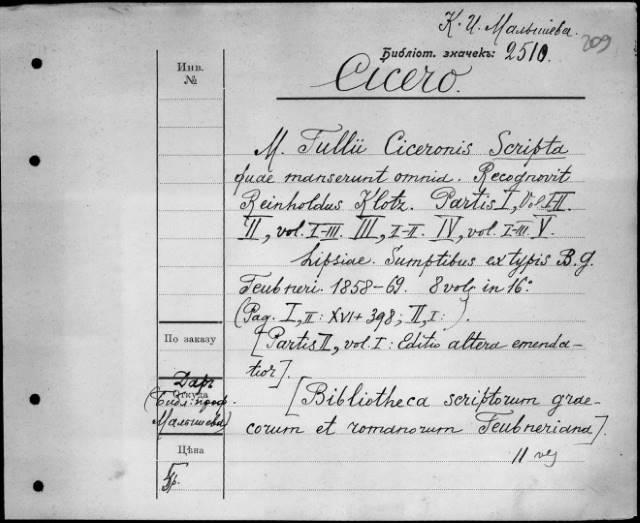 К. И. Малышева.
209
Библіот. значекъ: 2510.
Инв.
№
Cicero.
M. Tullii Ciceronis Scripta
quae manserunt omnia. Recognovit
Reinholdus Klotz. Partis I, Vol. I-II.
II, vol. I-III. III, I-II. IV, vol. I-III. V.
Lipsiae. Sumptibus ex typis B. G.
Teubneri. 1858-69. 8 vol. in 16°.
(Pag. I, II: XVI + 398; II, I: ).
По заказу
[Partis II, vol. I: Editio altera emenda-
tior].
Даръ
Откуда
(Библ. проф.
Малышева)
[Bibliotheca scriptorum grae-
corum et romanorum Teubneriana].
11
Цѣна
5 р.